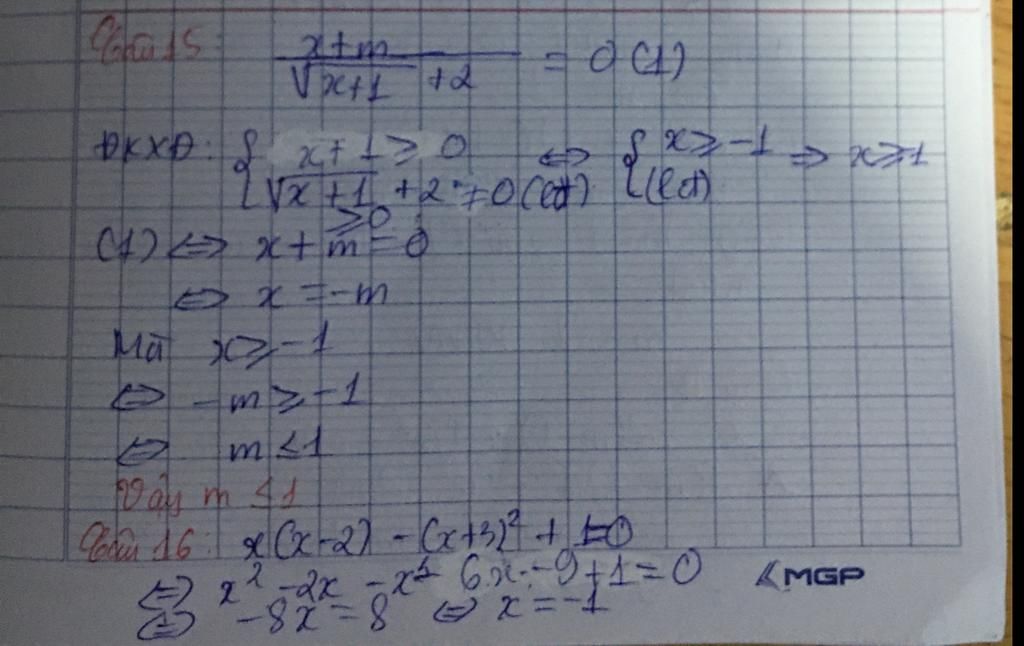 Câu 15: x+m / √x+1 + 2 = 0 (1)
ĐKXĐ: { x+1 ≥ 0 ⇔ { x ≥ -1 ⇒ x ≥ 1
√x+1 + 2 ≠ 0 (lđ) (lđ)
≥0
(1) ⇔ x + m = 0
⇔ x = -m
Mà x ≥ -1
⇔ -m ≥ -1
⇔ m ≤ 1
Vậy m ≤ 1
Câu 16: x(x-2) - (x+3)² + 1=0
⇔ x² - 2x - x² - 6x - 9 + 1 = 0
⇔ -8x = 8 ⇔ x = -1
MGP